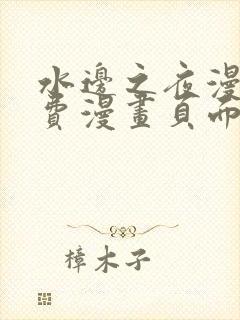 水邊之夜漫
費漫畫頁而
樟木子